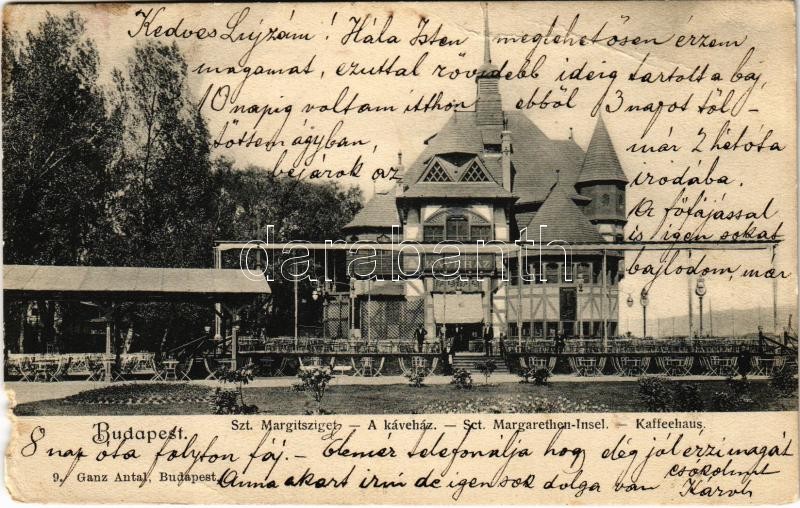 Kedves Lujzám! Hála Isten meglehetősen érzem
magamat, ezuttal rövidebb ideig tartott a baj,
10 napig voltam itthon ebből 3 napot töl-
töttem ágyban, már 2 hete óta
bejárok az irodába.
A főfájással
is igen sokat
bajlodom, már
darabanth
KÁVÉHÁZ
Budapest. Szt. Margitsziget. — A kávéház. — Sct. Margarethen-Insel. — Kaffeehaus.
8 nap óta folyton fáj. — Elemér telefonálja hogy dég jól érzi magát
9. Ganz Antal, Budapest.
Anna akart irni de igen sok dolga van csokolunk
Károly